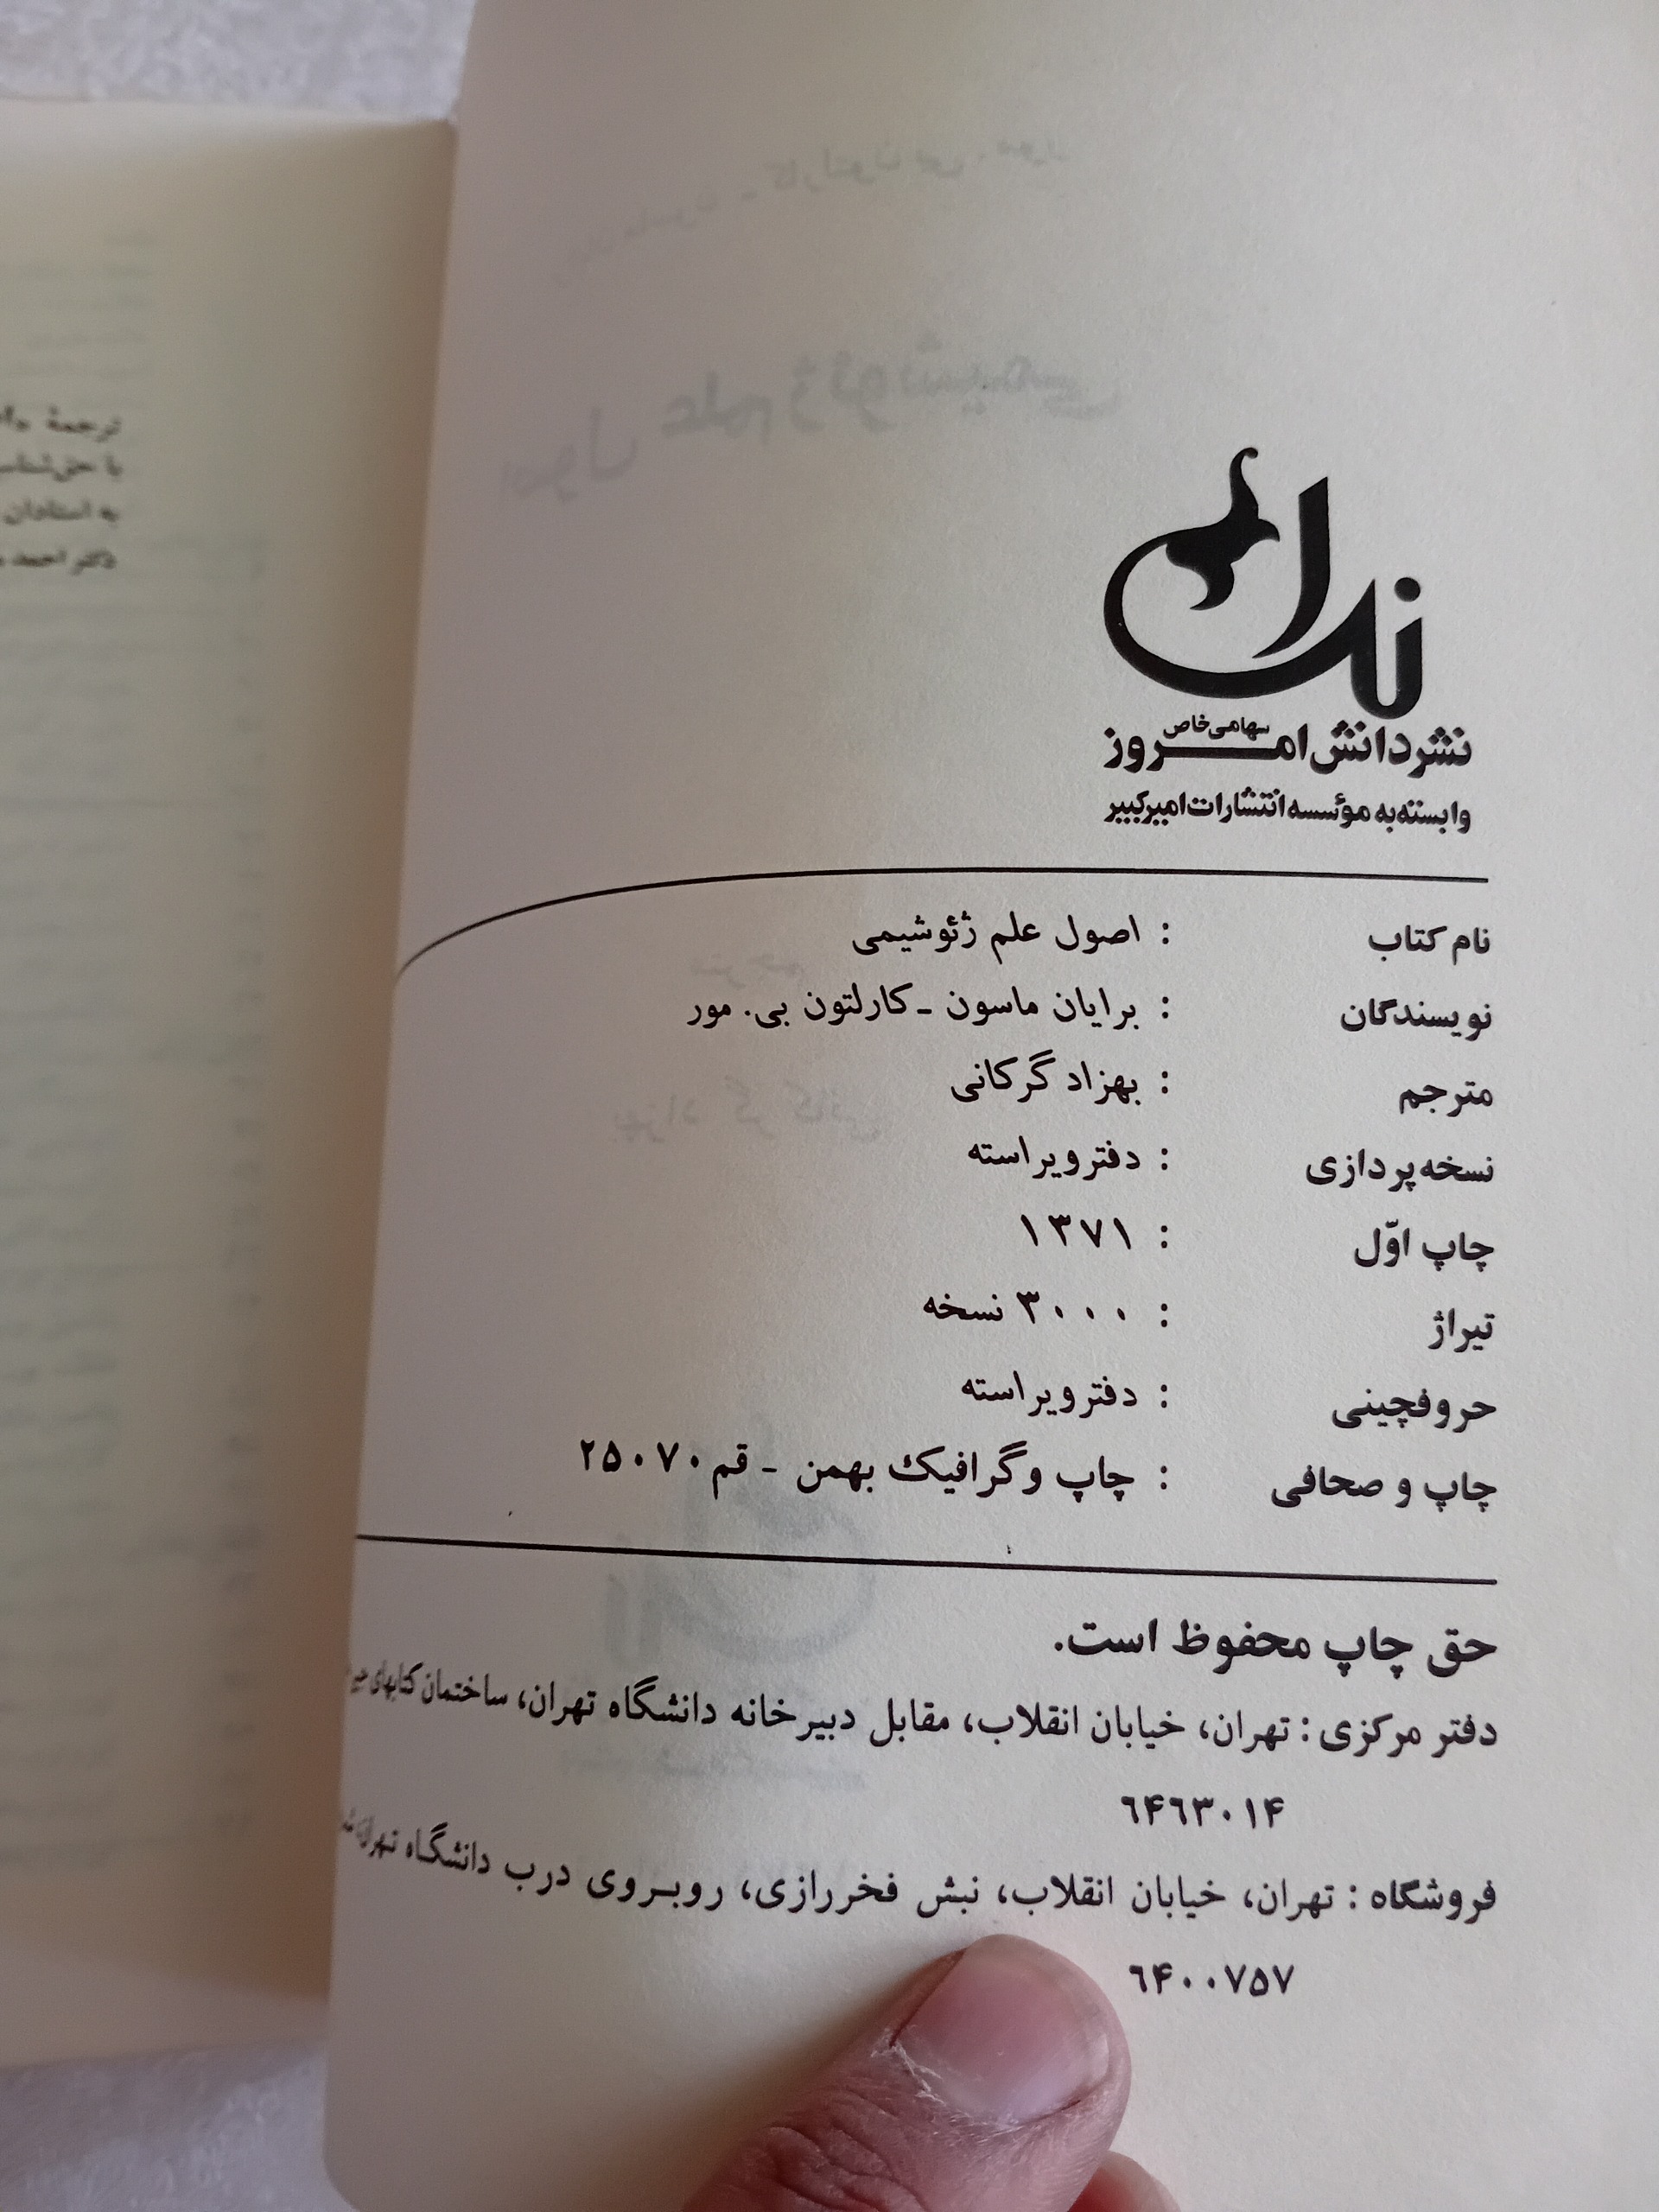 ترجمهٔ
با حق‌شناسی
به استادان
دکتر احمد
ندا
نشر دانش امروز
سهامی خاص
وابسته به مؤسسه انتشارات امیرکبیر
نام کتاب : اصول علم ژئوشیمی
نویسندگان : برایان ماسون ـ کارلتون بی. مور
مترجم : بهزاد گرکانی
نسخه‌پردازی : دفتر ویراسته
چاپ اوّل : ۱۳۷۱
تیراژ : ۳۰۰۰ نسخه
حروفچینی : دفتر ویراسته
چاپ و صحافی : چاپ و گرافیک بهمن - قم ۲۵۰۷۰
حق چاپ محفوظ است.
دفتر مرکزی : تهران، خیابان انقلاب، مقابل دبیرخانه دانشگاه تهران، ساختمان کتابهای
۶۴۶۳۰۱۴
فروشگاه : تهران، خیابان انقلاب، نبش فخررازی، روبروی درب دانشگاه تهران
۶۴۰۰۷۵۷